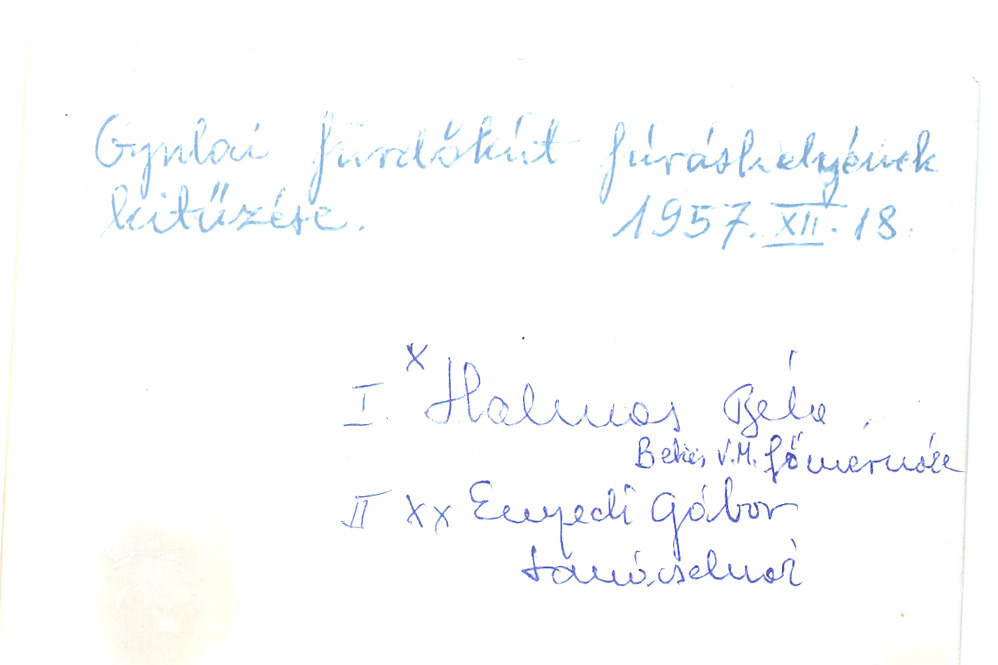 Gyulai fürdőkút fúráshelyének
kitűzése. 1957. XII. 18.
I. x Halmos Béla
Békés V.M. főmérnöke
II xx Enyedi Gábor
tanácselnök